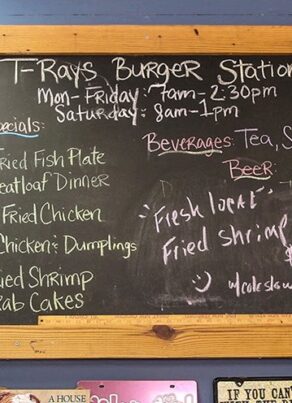 T-Rays Burger Station
Mon-Friday: 7am-2:30pm
Saturday: 8am-1pm
pecials:
ried Fish Plate
eatloaf Dinner
Fried Chicken
Chicken & Dumplings
ied Shrimp
rab Cakes
Beverages: Tea, S
Beer
Fresh local
Fried Shrimp
w/coleslaw
A HOUSE
IF YOU CAN'